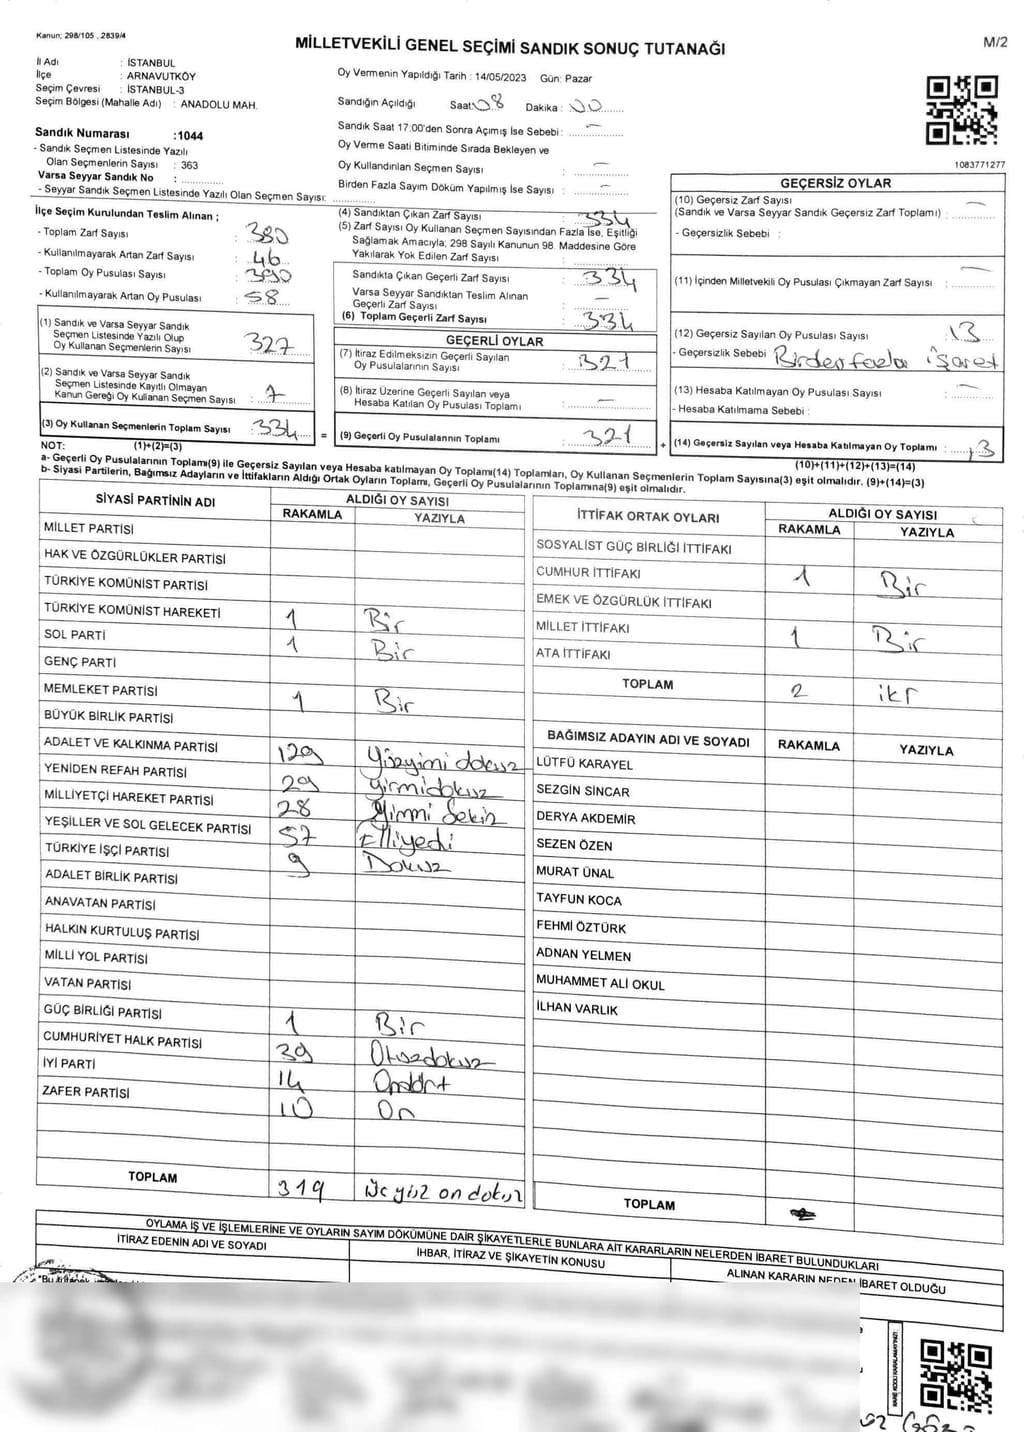 Kanun; 298/105 , 2839/4
MİLLETVEKİLİ GENEL SEÇİMİ SANDIK SONUÇ TUTANAĞI
M/2
İl Adı : İSTANBUL
İlçe : ARNAVUTKÖY
Seçim Çevresi : İSTANBUL-3
Seçim Bölgesi (Mahalle Adı) : ANADOLU MAH.
Sandık Numarası :1044
- Sandık Seçmen Listesinde Yazılı
Olan Seçmenlerin Sayısı : 363
Varsa Seyyar Sandık No :
- Seyyar Sandık Seçmen Listesinde Yazılı Olan Seçmen Sayısı:
Oy Vermenin Yapıldığı Tarih : 14/05/2023 Gün: Pazar
Sandığın Açıldığı Saat: 08 Dakika : 00
Sandık Saat 17:00'den Sonra Açımış İse Sebebi : —
Oy Verme Saati Bitiminde Sırada Bekleyen ve
Oy Kullandırılan Seçmen Sayısı : —
Birden Fazla Sayım Döküm Yapılmış İse Sayısı : —
1083771277
İlçe Seçim Kurulundan Teslim Alınan ;
- Toplam Zarf Sayısı : 380
- Kullanılmayarak Artan Zarf Sayısı : 46
- Toplam Oy Pusulası Sayısı : 390
- Kullanılmayarak Artan Oy Pusulası : 58
(1) Sandık ve Varsa Seyyar Sandık
Seçmen Listesinde Yazılı Olup
Oy Kullanan Seçmenlerin Sayısı : 327
(2) Sandık ve Varsa Seyyar Sandık
Seçmen Listesinde Kayıtlı Olmayan
Kanun Gereği Oy Kullanan Seçmen Sayısı : 7
(3) Oy Kullanan Seçmenlerin Toplam Sayısı : 334
(4) Sandıktan Çıkan Zarf Sayısı : 334
(5) Zarf Sayısı Oy Kullanan Seçmen Sayısından Fazla İse, Eşitliği
Sağlamak Amacıyla; 298 Sayılı Kanunun 98. Maddesine Göre
Yakılarak Yok Edilen Zarf Sayısı :
Sandıkta Çıkan Geçerli Zarf Sayısı : 334
Varsa Seyyar Sandıktan Teslim Alınan
Geçerli Zarf Sayısı : —
(6) Toplam Geçerli Zarf Sayısı : 334
GEÇERLİ OYLAR
(7) İtiraz Edilmeksizin Geçerli Sayılan
Oy Pusulalarının Sayısı : 321
(8) İtiraz Üzerine Geçerli Sayılan veya
Hesaba Katılan Oy Pusulası Toplamı : —
= (9) Geçerli Oy Pusulalarının Toplamı : 321
GEÇERSİZ OYLAR
(10) Geçersiz Zarf Sayısı
(Sandık ve Varsa Seyyar Sandık Geçersiz Zarf Toplamı) : —
- Geçersizlik Sebebi :
(11) İçinden Milletvekili Oy Pusulası Çıkmayan Zarf Sayısı : —
(12) Geçersiz Sayılan Oy Pusulası Sayısı : 13
- Geçersizlik Sebebi : Birden fazla işaret
(13) Hesaba Katılmayan Oy Pusulası Sayısı : —
- Hesaba Katılmama Sebebi :
+ (14) Geçersiz Sayılan veya Hesaba Katılmayan Oy Toplamı : 13
NOT: (1)+(2)=(3)
(10)+(11)+(12)+(13)=(14)
a- Geçerli Oy Pusulalarının Toplamı(9) ile Geçersiz Sayılan veya Hesaba katılmayan Oy Toplamı(14) Toplamları, Oy Kullanan Seçmenlerin Toplam Sayısına(3) eşit olmalıdır. (9)+(14)=(3)
b- Siyasi Partilerin, Bağımsız Adayların ve İttifakların Aldığı Ortak Oyların Toplamı, Geçerli Oy Pusulalarının Toplamına(9) eşit olmalıdır.
SİYASİ PARTİNİN ADI ALDIĞI OY SAYISI
RAKAMLA YAZIYLA
MİLLET PARTİSİ
HAK VE ÖZGÜRLÜKLER PARTİSİ
TÜRKİYE KOMÜNİST PARTİSİ
TÜRKİYE KOMÜNİST HAREKETİ 1 Bir
SOL PARTİ 1 Bir
GENÇ PARTİ
MEMLEKET PARTİSİ 1 Bir
BÜYÜK BİRLİK PARTİSİ
ADALET VE KALKINMA PARTİSİ 129 Yüzyirmi dokuz
YENİDEN REFAH PARTİSİ 29 Yirmidokuz
MİLLİYETÇİ HAREKET PARTİSİ 28 Yirmi Sekiz
YEŞİLLER VE SOL GELECEK PARTİSİ 57 Elliyedi
TÜRKİYE İŞÇİ PARTİSİ 9 Dokuz
ADALET BİRLİK PARTİSİ
ANAVATAN PARTİSİ
HALKIN KURTULUŞ PARTİSİ
MİLLİ YOL PARTİSİ
VATAN PARTİSİ
GÜÇ BİRLİĞİ PARTİSİ 1 Bir
CUMHURİYET HALK PARTİSİ 39 Otuzdokuz
İYİ PARTİ 14 Ondört
ZAFER PARTİSİ 10 On
TOPLAM 319 üç yüz on dokuz
İTTİFAK ORTAK OYLARI ALDIĞI OY SAYISI
RAKAMLA YAZIYLA
SOSYALİST GÜÇ BİRLİĞİ İTTİFAKI
CUMHUR İTTİFAKI 1 Bir
EMEK VE ÖZGÜRLÜK İTTİFAKI
MİLLET İTTİFAKI 1 Bir
ATA İTTİFAKI
TOPLAM 2 iki
BAĞIMSIZ ADAYIN ADI VE SOYADI RAKAMLA YAZIYLA
LÜTFÜ KARAYEL
SEZGİN SİNCAR
DERYA AKDEMİR
SEZEN ÖZEN
MURAT ÜNAL
TAYFUN KOCA
FEHMİ ÖZTÜRK
ADNAN YELMEN
MUHAMMET ALİ OKUL
İLHAN VARLIK
TOPLAM
OYLAMA İŞ VE İŞLEMLERİNE VE OYLARIN SAYIM DÖKÜMÜNE DAİR ŞİKAYETLERLE BUNLARA AİT KARARLARIN NELERDEN İBARET BULUNDUKLARI
İTİRAZ EDENİN ADI VE SOYADI
İHBAR, İTİRAZ VE ŞİKAYETİN KONUSU
ALINAN KARARIN NEDEN İBARET OLDUĞU
KARE KODU KARALAMAYINIZ!